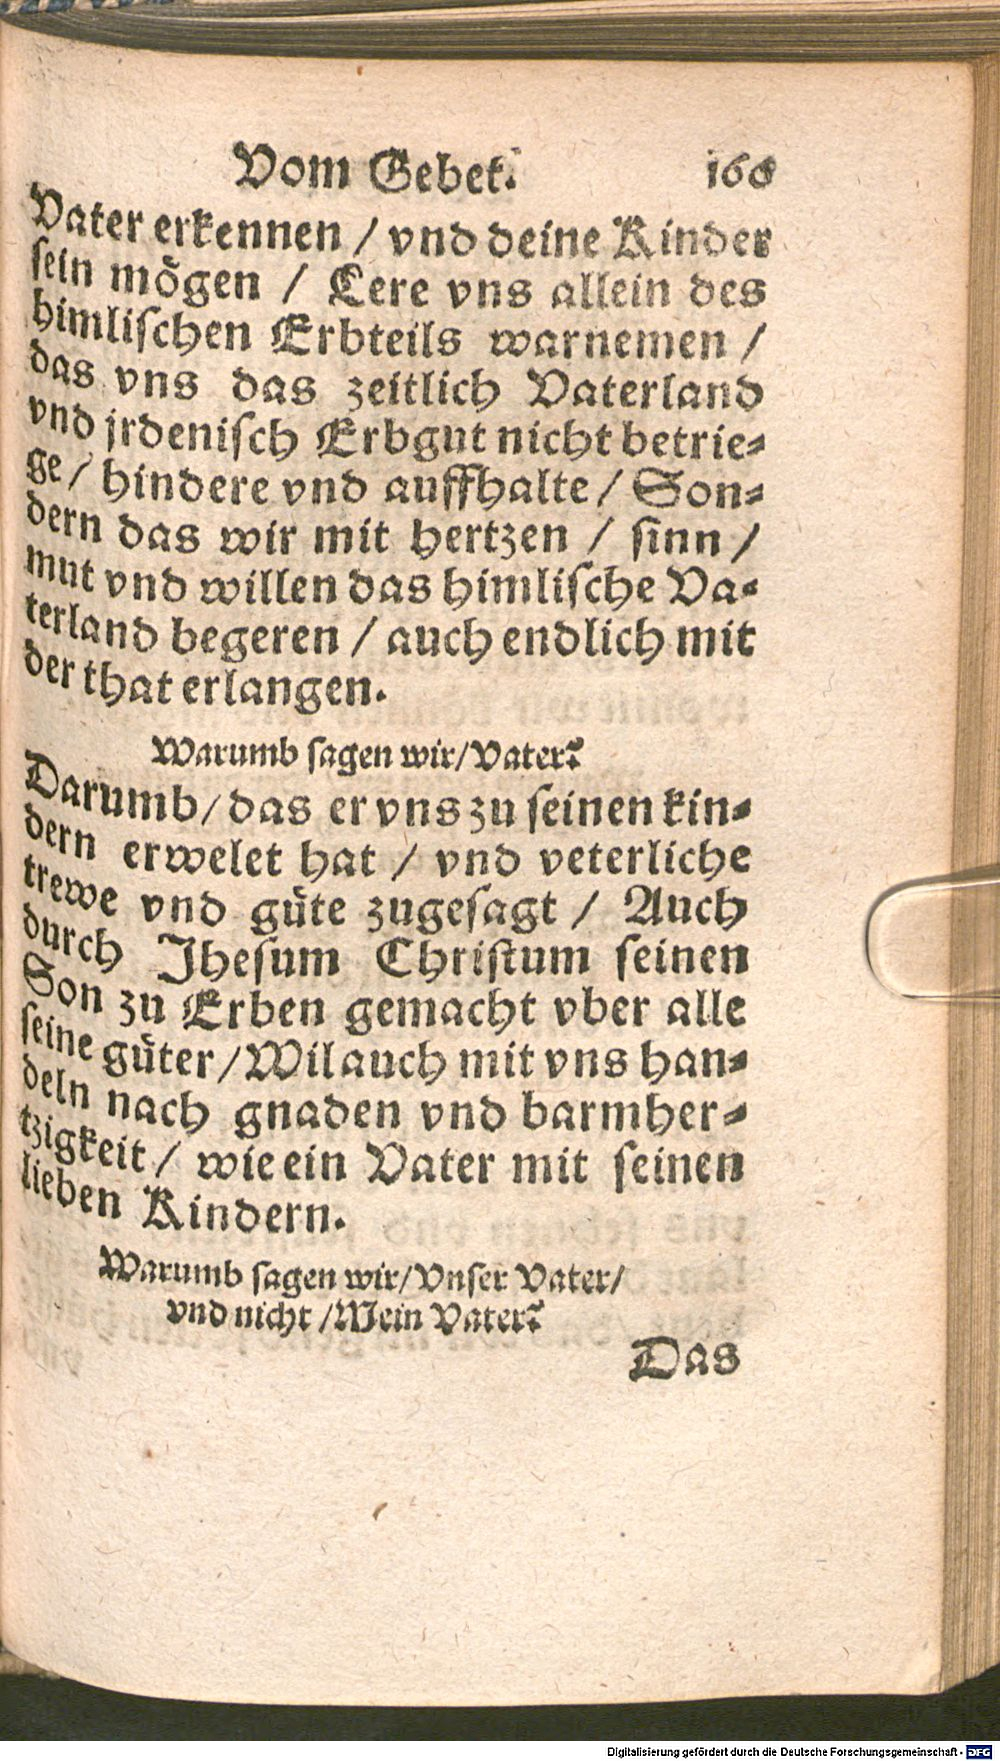 Vom Gebet. 160
Vater erkennen / vnd deine Kinder
sein mögen / Lere vns allein des
himlischen Erbteils warnemen /
das vns das zeitlich Vaterland
vnd jrdenisch Erbgut nicht betrie-
ge / hindere vnd auffhalte / Son-
dern das wir mit hertzen / sinn /
mut vnd willen das himlische Va-
terland begeren / auch endlich mit
der that erlangen.
Warumb sagen wir / Vater?
Darumb / das er vns zu seinen kin-
dern erwelet hat / vnd veterliche
trewe vnd güte zugesagt / Auch
durch Jhesum Christum seinen
Son zu Erben gemacht vber alle
seine güter / Wil auch mit vns han-
deln nach gnaden vnd barmher-
tzigkeit / wie ein Vater mit seinen
lieben Kindern.
Warumb sagen wir / Vnser Vater /
vnd nicht / Mein Vater?
Das
Digitalisierung gefördert durch die Deutsche Forschungsgemeinschaft - DFG